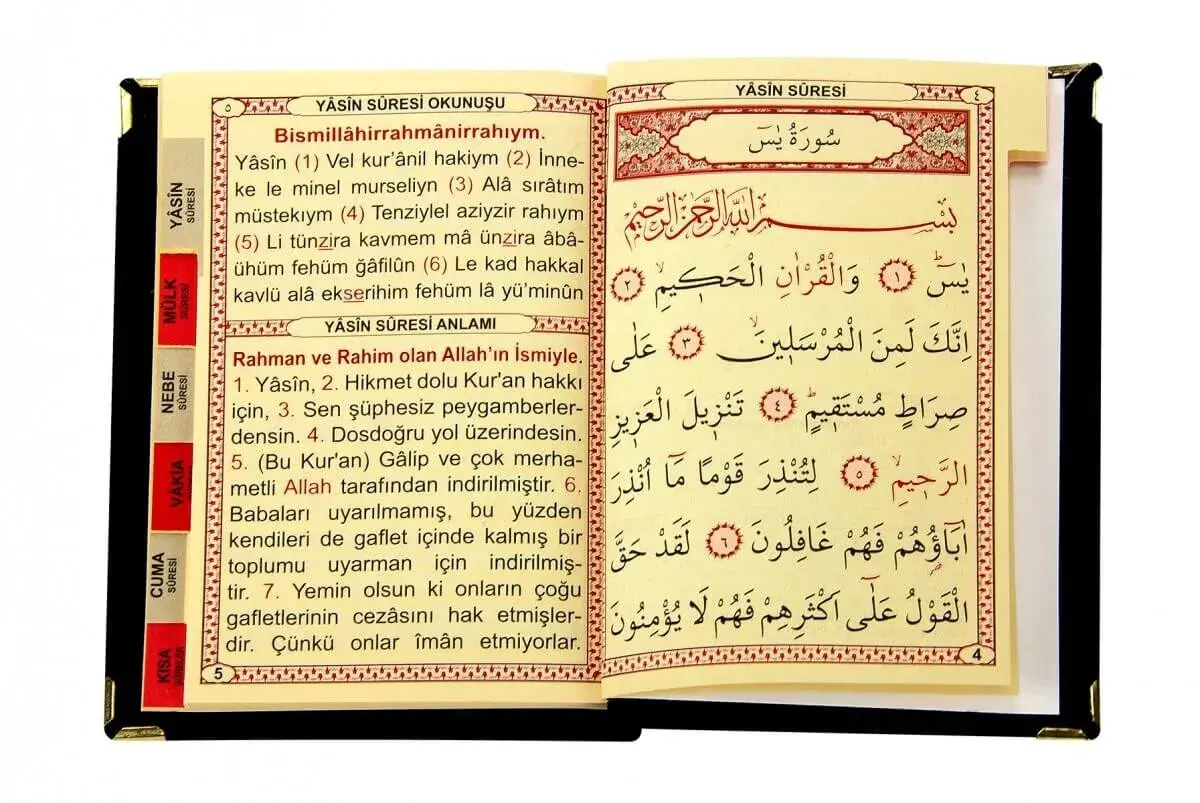 ٥
YÂSİN SÛRESİ OKUNUŞU
Bismillâhirrahmânirrahıym.
Yâsîn (1) Vel kur’ânil hakiym (2) İnne-
ke le minel murseliyn (3) Alâ sırâtım
müstekıym (4) Tenziylel aziyzir rahıym
(5) Li tünzira kavmem mâ ünzira âbâ-
ühüm fehüm ğâfilûn (6) Le kad hakkal
kavlü alâ ekserihim fehüm lâ yü’minûn
YÂSİN SÛRESİ ANLAMI
Rahman ve Rahim olan Allah’ın İsmiyle.
1. Yâsîn, 2. Hikmet dolu Kur'an hakkı
için, 3. Sen şüphesiz peygamberler-
densin. 4. Dosdoğru yol üzerindesin.
5. (Bu Kur'an) Gâlip ve çok merha-
metli Allah tarafından indirilmiştir. 6.
Babaları uyarılmamış, bu yüzden
kendileri de gaflet içinde kalmış bir
toplumu uyarman için indirilmiş-
tir. 7. Yemin olsun ki onların çoğu
gafletlerinin cezâsını hak etmişler-
dir. Çünkü onlar îmân etmiyorlar.
5
YÂSİN SÛRESİ
٤
سُورَةُ يٰسٓ
بِسْمِ اللّٰهِ الرَّحْمٰنِ الرَّحِيمِ
يٰسٓ ۚ ﴿١﴾ وَالْقُرْاٰنِ الْحَك۪يمِۙ ﴿٢﴾
اِنَّكَ لَمِنَ الْمُرْسَل۪ينَۙ ﴿٣﴾ عَلٰى
صِرَاطٍ مُسْتَق۪يمٍۜ ﴿٤﴾ تَنْز۪يلَ الْعَز۪يزِ
الرَّح۪يمِۙ ﴿٥﴾ لِتُنْذِرَ قَوْمًا مَٓا اُنْذِرَ
اٰبَٓاؤُ۬هُمْ فَهُمْ غَافِلُونَ ﴿٦﴾ لَقَدْ حَقَّ
الْقَوْلُ عَلٰٓى اَكْثَرِهِمْ فَهُمْ لَا يُؤْمِنُونَ
4
YÂSİN
SÛRESİ
MÜLK
SÛRESİ
NEBE
SÛRESİ
VÂKIA
CUMA
SÛRESİ
KISA
SÛRELER